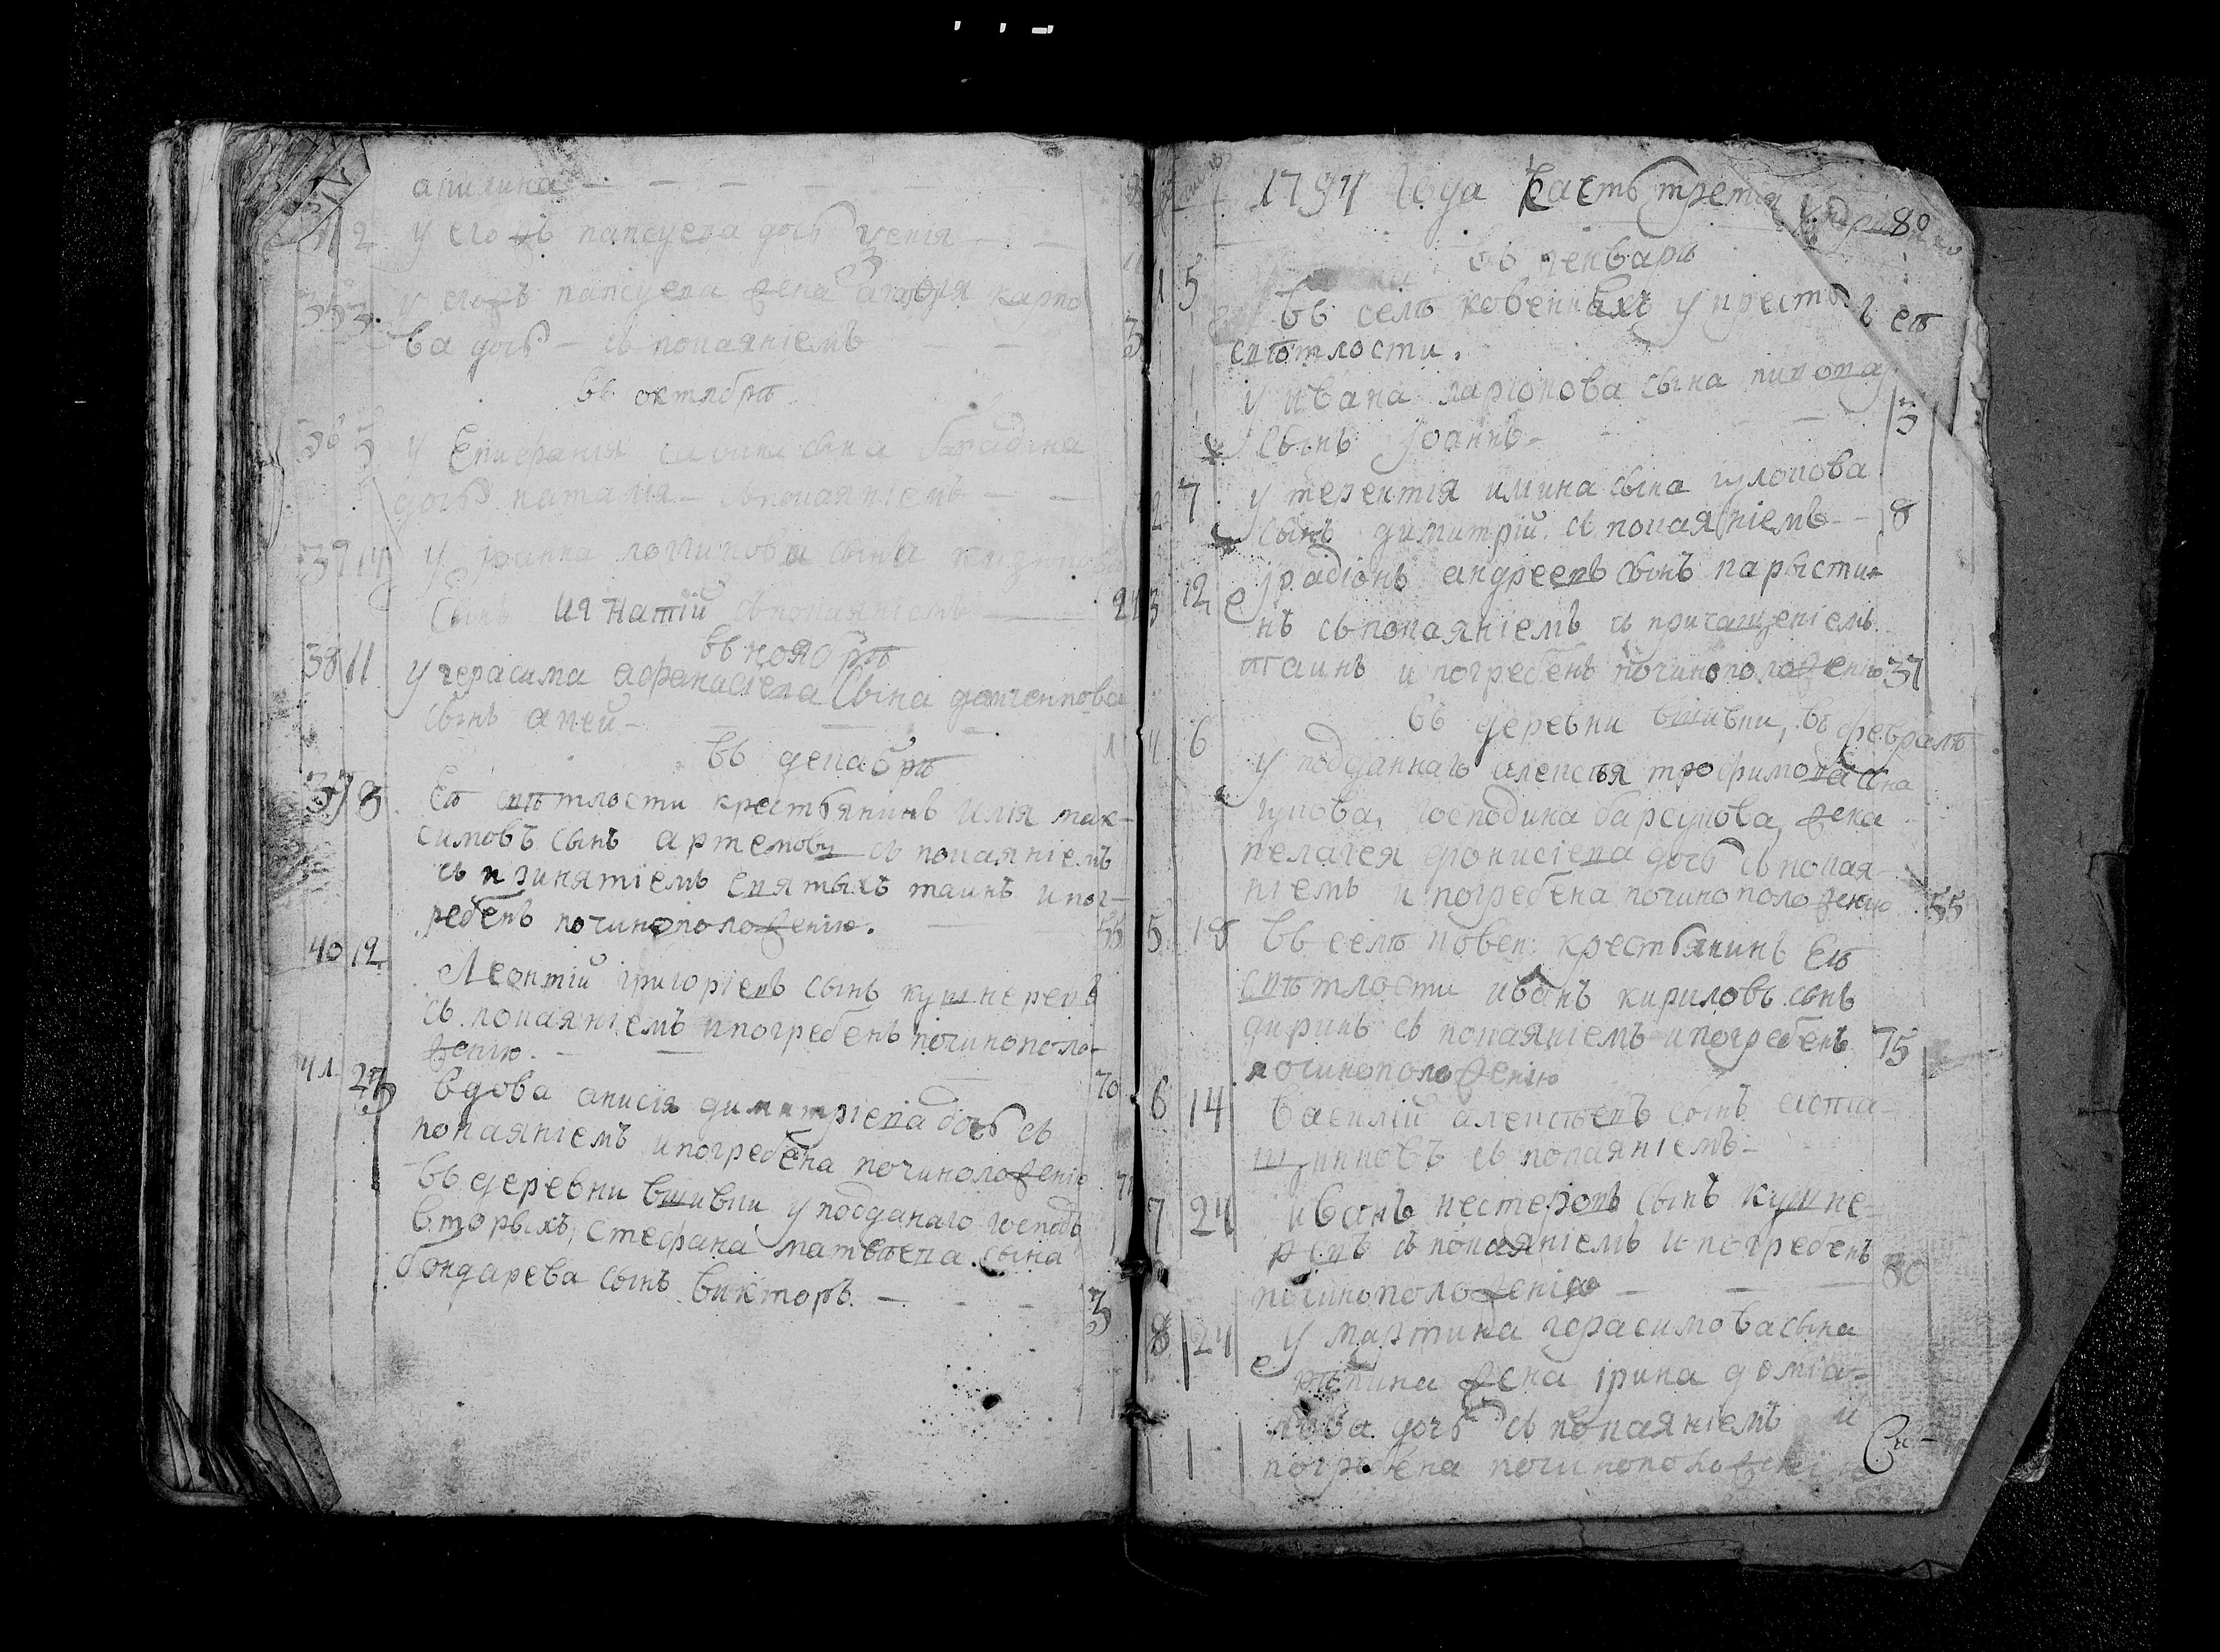 акилина
2 у его жъ папсуева дочь ѵенія
35 3. у его жъ папсуева жена агафія карпо
ва дочь съ покаяніемъ 3
въ октябрѣ
36 5 у Епифанія савина сына багадина
дочь наталія съ покаяніемъ
37 14 у іоанна логгинова сына
сынъ игнатій съ покаяніемъ 24
въ ноябрѣ
38 11 у герасима афанасіева сына
сынъ
въ декабрѣ 1
39 8 Еѣ свѣтлости крестьянинъ илія мак-
симовъ сынъ артемовъ съ покаяніемъ
съ принятіемъ святыхъ таинъ и пог-
ребенъ починоположенію. 55
40 12 Леонтій григоріевъ сынъ кушнеревъ
съ покаяніемъ и погребенъ починополо-
женію. 70
41 25 вдова анисія димитріева дочь съ
покаяніемъ и погребена починоложенію 71
въ деревни вшивки у подданаго господъ
вторыхъ, стефана матвѣева сына
бондарева сынъ викторъ. 3
1794 года Часть третія 80
въ генварѣ
1 5 въ селѣ ковенкахъ у крестья еѣ
свѣтлости.
у ивана ларіонова сына
сынъ іоаннъ 3
2 7 у терентія имина сына
сынъ димитрій съ покаяніемъ 8
3 12 радіонъ андреевъ сынъ
нъ съ покаяніемъ съ причащеніемъ
таинъ и погребенъ починоположенію 37
въ деревни вшивки, въ февралѣ
4 6 у подданнаго алексѣя трофимова сына
гукова, господина барсукова, жена
пелагея дѳнисіева дочь съ покая-
ніемъ и погребена починоположенію 55
5 18 въ селѣ ковен: крестьянинъ Еѣ
свѣтлости иванъ кириловъ сынъ
диринъ съ покаяніемъ и погребенъ 75
починоположенію
6 14 василій алексѣевъ сынъ
съ покаяніемъ
7 24 иванъ нестеровъ сынъ кушне-
ревъ съ покаяніемъ и погребенъ
починоположенію 80
8 24 у мартина герасимова сына
рѣпина жена ірина доміа-
нова дочь съ покаяніемъ и
погребена починоположенію